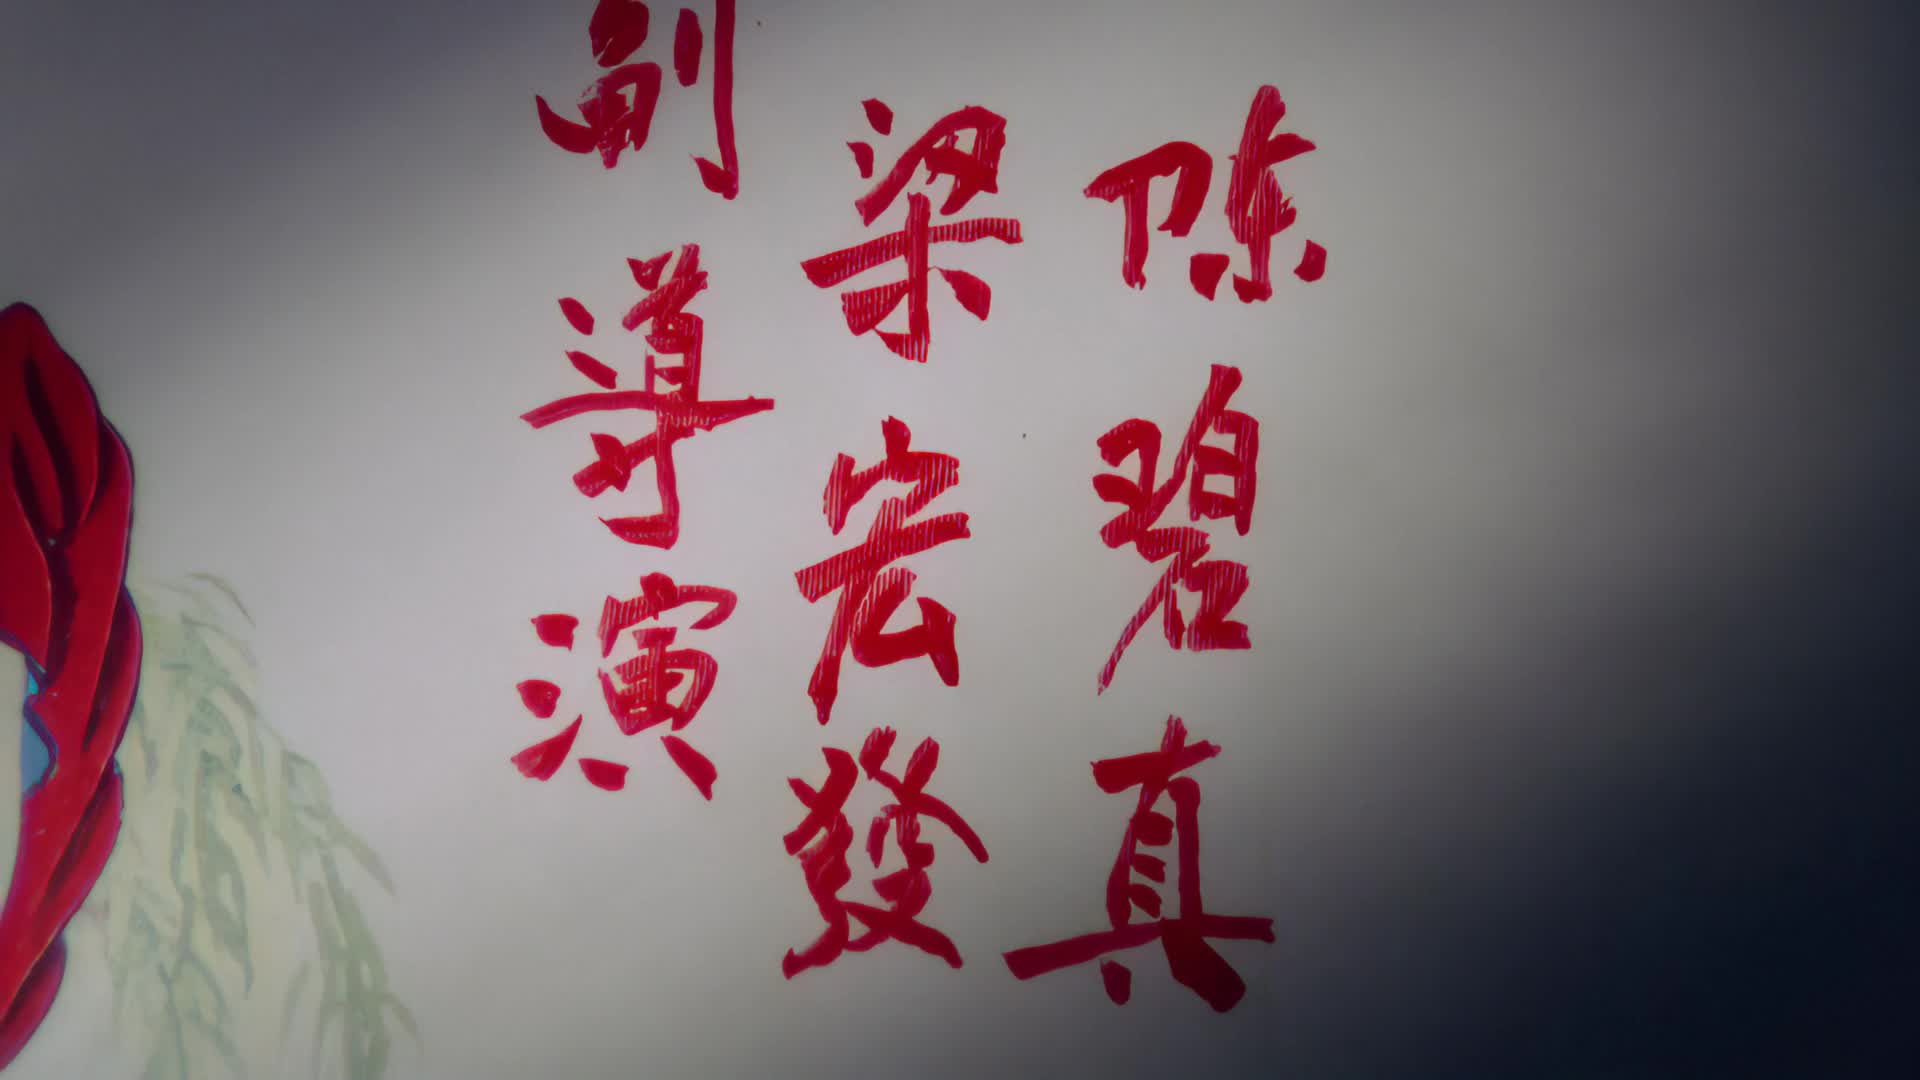 副導演
梁宏發
陈碧真